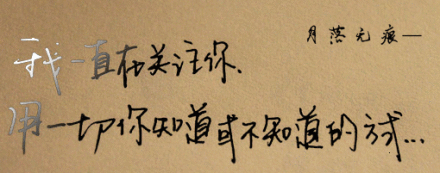 月落无痕—
我一直在关注你.
用一切你知道或不知道的方式...